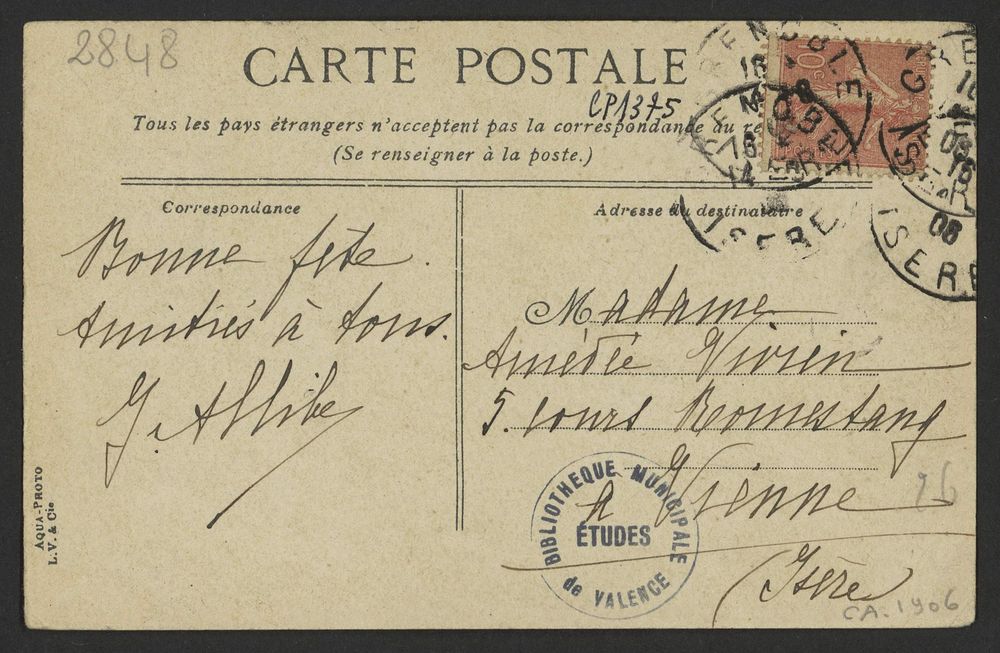 2848
CARTE POSTALE
CP1375
Tous les pays étrangers n'acceptent pas la correspondance au
(Se renseigner à la poste.)
Correspondance
Bonne fête.
Amitiés à tous.
J. Allibe
AQUA-PHOTO
L.V. & Cie
GRENOBLE
ISERE
10c
ISERE
06
Adresse du destinataire
Madame
Amédée Vivien
5. cours Romestang
à Vienne
(Isère)
26
BIBLIOTHEQUE MUNICIPALE
ÉTUDES
de VALENCE
CA. 1906